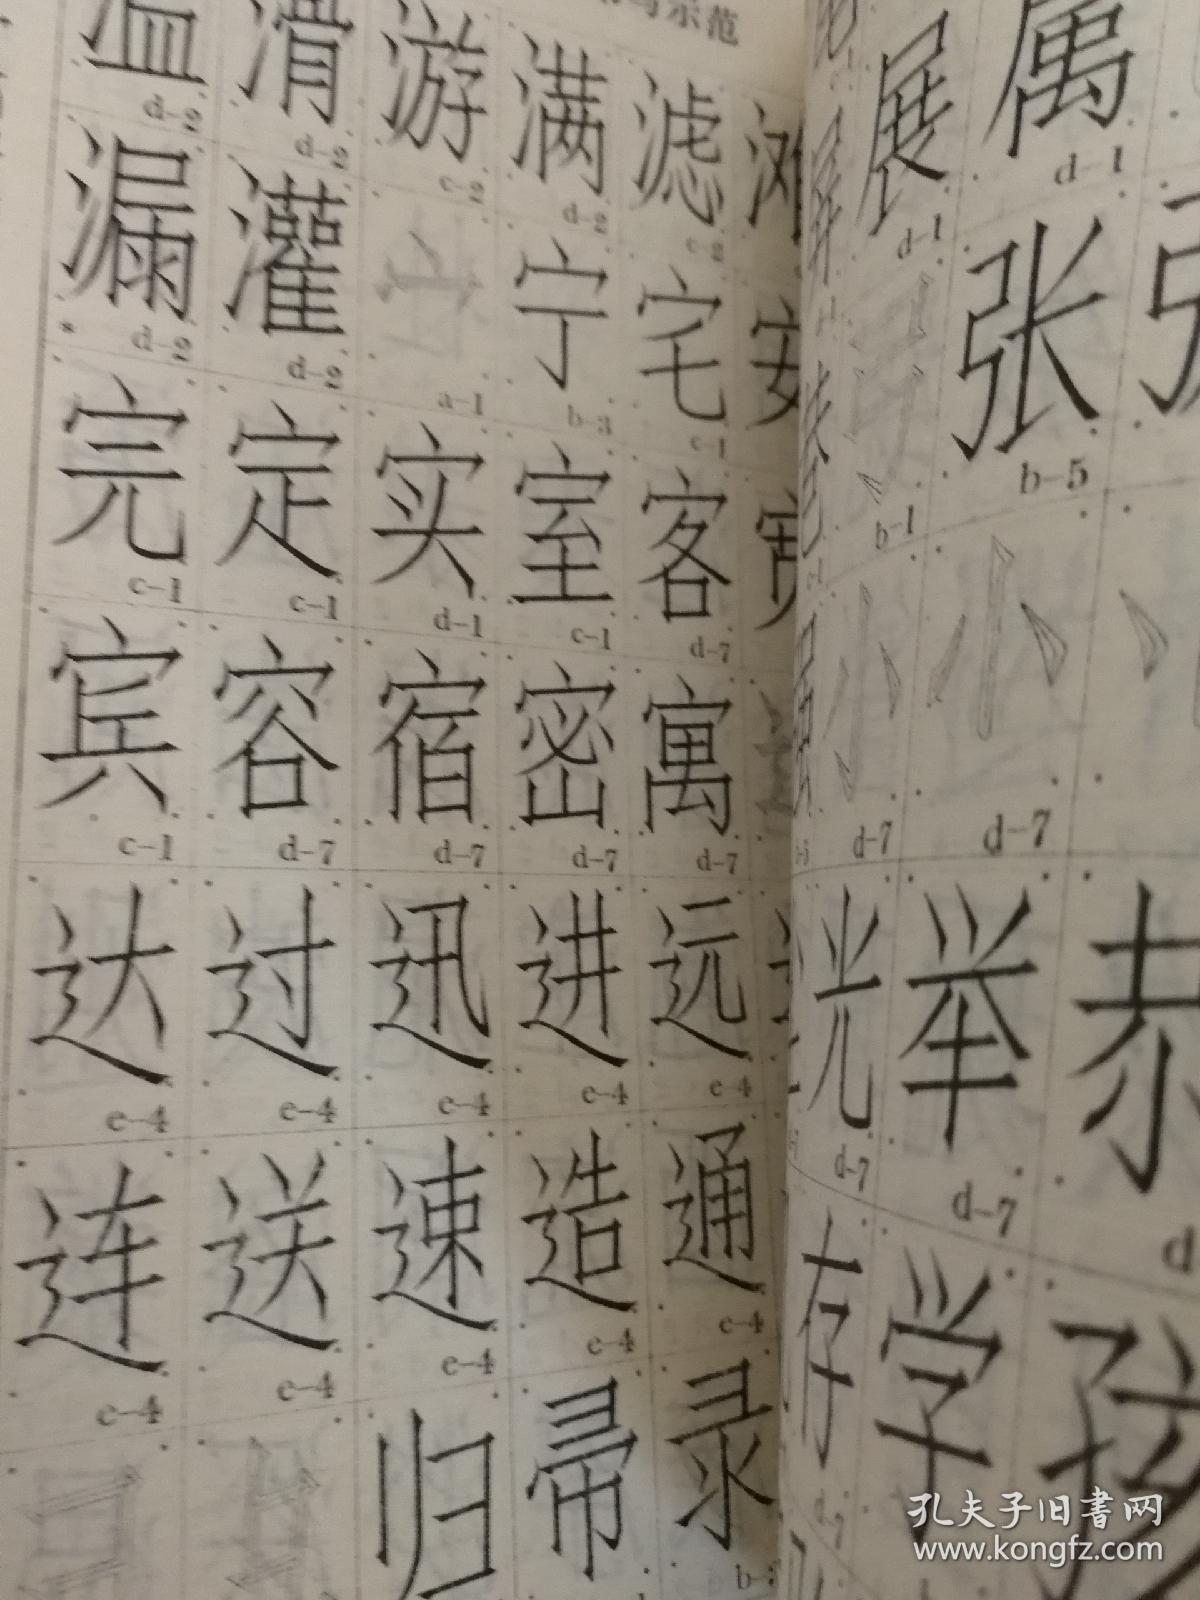 示范
温 滑 游 满 滤
d-2 d-2 c-2 d-2 c-2
漏 灌 宀 宁 宅 安
d-2 d-2 a-1 b-3 c-1
完 定 实 室 客
c-1 c-1 d-1 c-1 d-7
宾 容 宿 密 寓
c-1 d-7 d-7 d-7 d-7
达 过 迅 进 远
e-4 e-4 e-4 e-4 e-4
连 送 速 造 通
e-4 e-4 e-4 e-4 e-4
归 帚 录
展 属
d-1 d-1
张
b-1 b-5
小
d-7 d-7
光 举 恭
d-7 d-7
存 学
孔夫子旧书网
www.kongfz.com